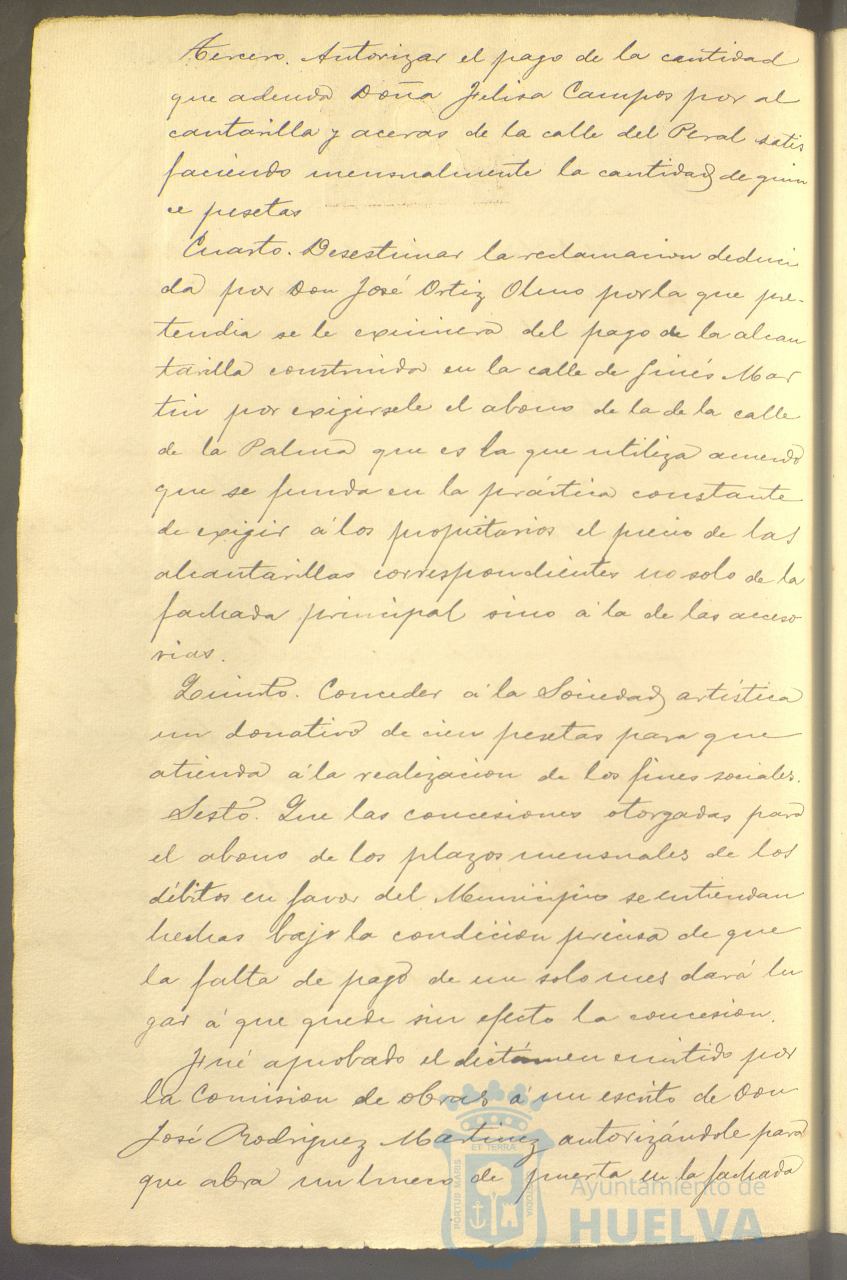 Tercero. Autorizar el pago de la cantidad
que adeuda Doña Felisa Campos por al
cantarilla y aceras de la calle del Peral satis
faciendo mensualmente la cantidad de quin
ce pesetas
Cuarto. Desestimar la reclamacion deduci
da por Don José Ortiz Olmo por la que pre-
tendia se le eximiera del pago de la alcan
tarilla construida en la calle de Ginés Mar
tin por exigirsele el abono de la de la calle
de la Palma que es la que utiliza acuerdo
que se funda en la práctica constante
de exigir á los propietarios el precio de las
alcantarillas correspondientes no solo de la
fachada principal sino á la de las acceso
rias.
Quinto. Conceder á la Sociedad artística
un donativo de cien pesetas para que
atienda á la realizacion de los fines sociales.
Sesto. Que las concesiones otorgadas para
el abono de los plazos mensuales de los
débitos en favor del Municipio se entiendan
hechas bajo la condicion precisa de que
la falta de pago de un solo mes dará lu
gar á que quede sin efecto la concesion.
Fué aprobado el dictámen emitido por
la Comision de obras á un escrito de Don
José Rodriguez Martinez autorizándole para
que abra un hueco de puerta en la fachada
PORTUS MARIS
ET TERRA
CUSTODIA
Ayuntamiento de
HUELVA